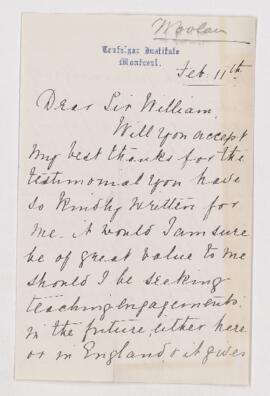 Woolan
Trafalgar Institute
Montreal.
Feb. 11th
Dear Sir William,
Will you accept
my best thanks for the
testimonial you have
so kindly written for
me. it would I am sure
be of great value to me
should I be seeking
teaching engagements
in the future, either here
or in England & it gives